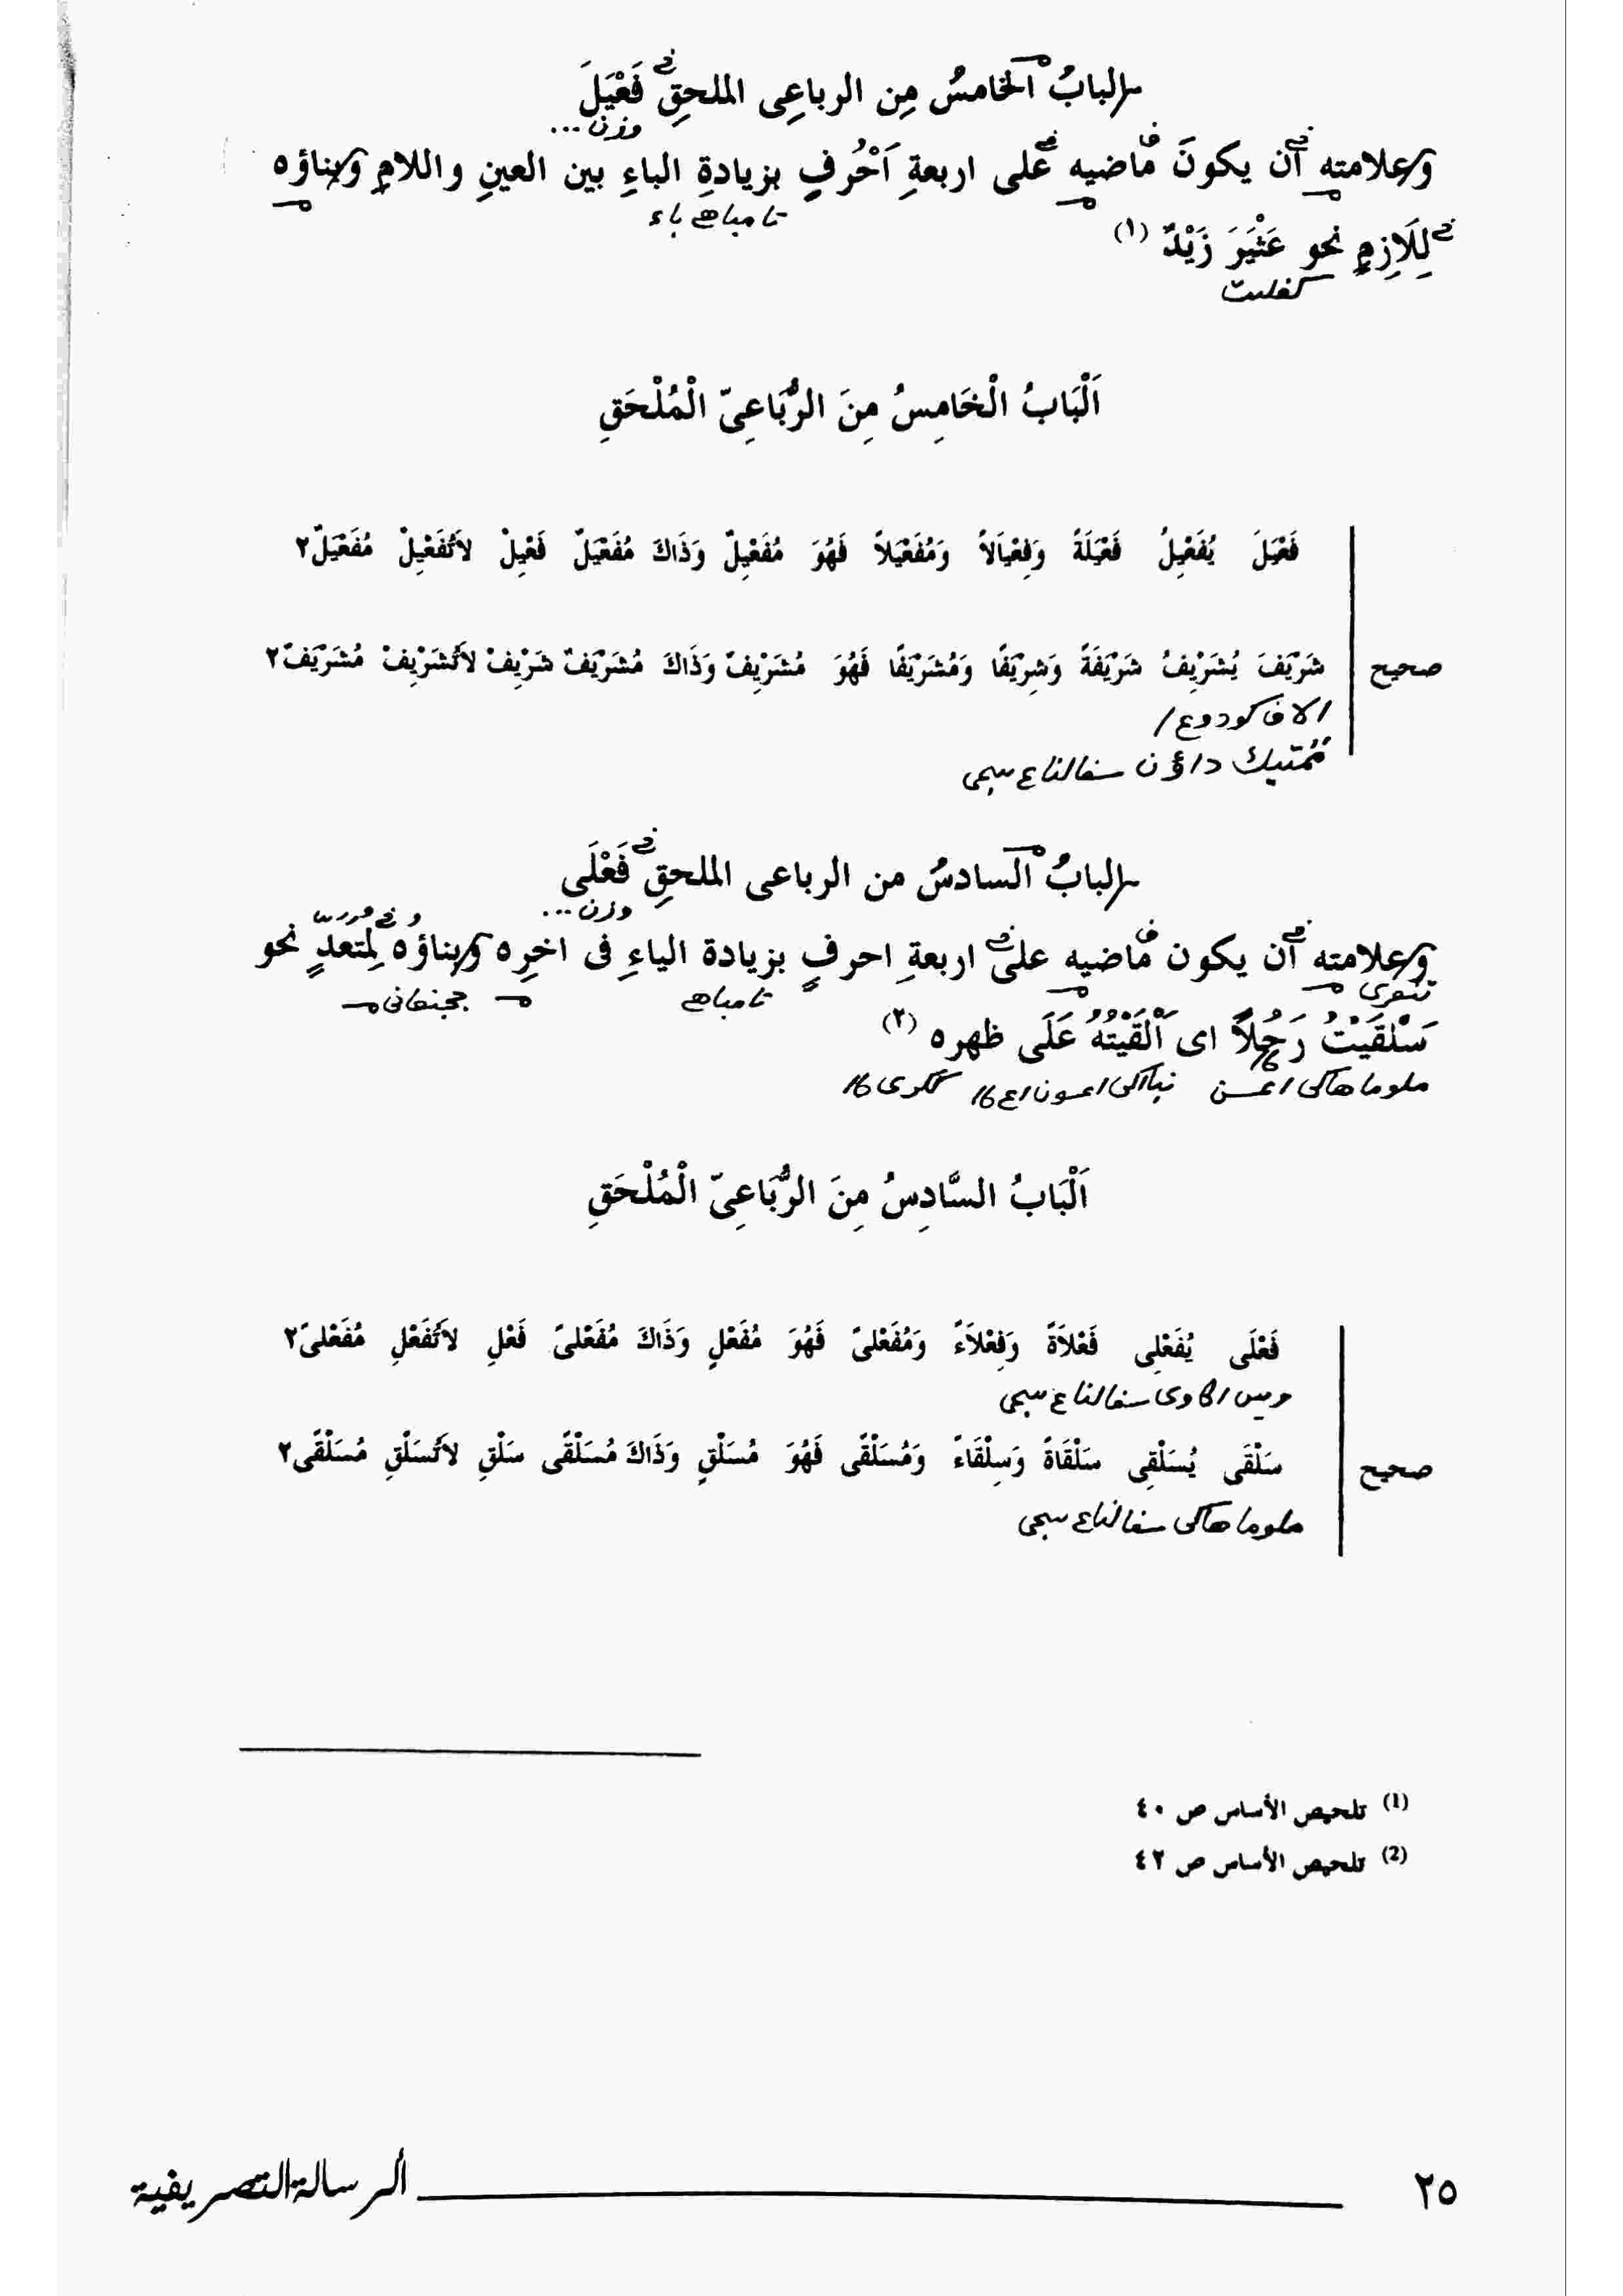 البابُ الخامسُ مِن الرباعِى الملحقِ فَعْيَلَ
وزن ...
وعلامته أن يكونَ ماضيه على اربعةِ اَحْرُفٍ بزيادةِ الباءِ بين العينِ واللامِ وبناؤه
تامباهى باء
لِلَازِمِ نحو عَثْيَرَ زَيْدٌ (١)
كفليت
اَلْبَابُ الْخَامِسُ مِنَ الرُّبَاعِىّ الْمُلْحَقِ
فَعْيَلَ يُفَعْيِلُ فَعْيَلَةً وَفِعْيَالاً وَمُفَعْيَلاً فَهُوَ مُفَعْيِلٌ وَذَاكَ مُفَعْيَلٌ فَعْيِلْ لاَتُفَعْيِلْ مُفَعْيَلٌ٢
صحيح شَرْيَفَ يُشَرْيِفُ شَرْيَفَةً وَشِرْيَفًا وَمُشَرْيَفًا فَهُوَ مُشَرْيِفٌ وَذَاكَ مُشَرْيَفٌ شَرْيِفْ لاَتُشَرْيِفْ مُشَرْيَفٌ٢
البابُ السادسُ من الرباعى الملحقِ فَعْلَى
وزن ...
وعلامته أن يكون ماضيه على اربعةِ احرفٍ بزيادة الياءِ فى اخرِه وبناؤُه لِمتعدٍ نحو
تامباهى
سَلْقَيْتُ رَجُلاً اى اَلْقَيْتُهُ عَلَى ظهره (٢)
اَلْبَابُ السَّادِسُ مِنَ الرُّبَاعِىّ الْمُلْحَقِ
فَعْلَى يُفَعْلِى فَعْلاَةً وَفِعْلاَءً وَمُفَعْلىً فَهُوَ مُفَعْلٍ وَذَاكَ مُفَعْلىً فَعْلِ لاَتُفَعْلِ مُفَعْلىً٢
صحيح سَلْقَى يُسَلْقِى سَلْقَاةً وَسِلْقَاءً وَمُسَلْقًى فَهُوَ مُسَلْقٍ وَذَاكَ مُسَلْقًى سَلْقِ لاَتُسَلْقِ مُسَلْقًى٢
(1) تلحيص الأساس ص ٤٠
(2) تلحيص الأساس ص ٤٢
٢٥ الرسالة التصريفية